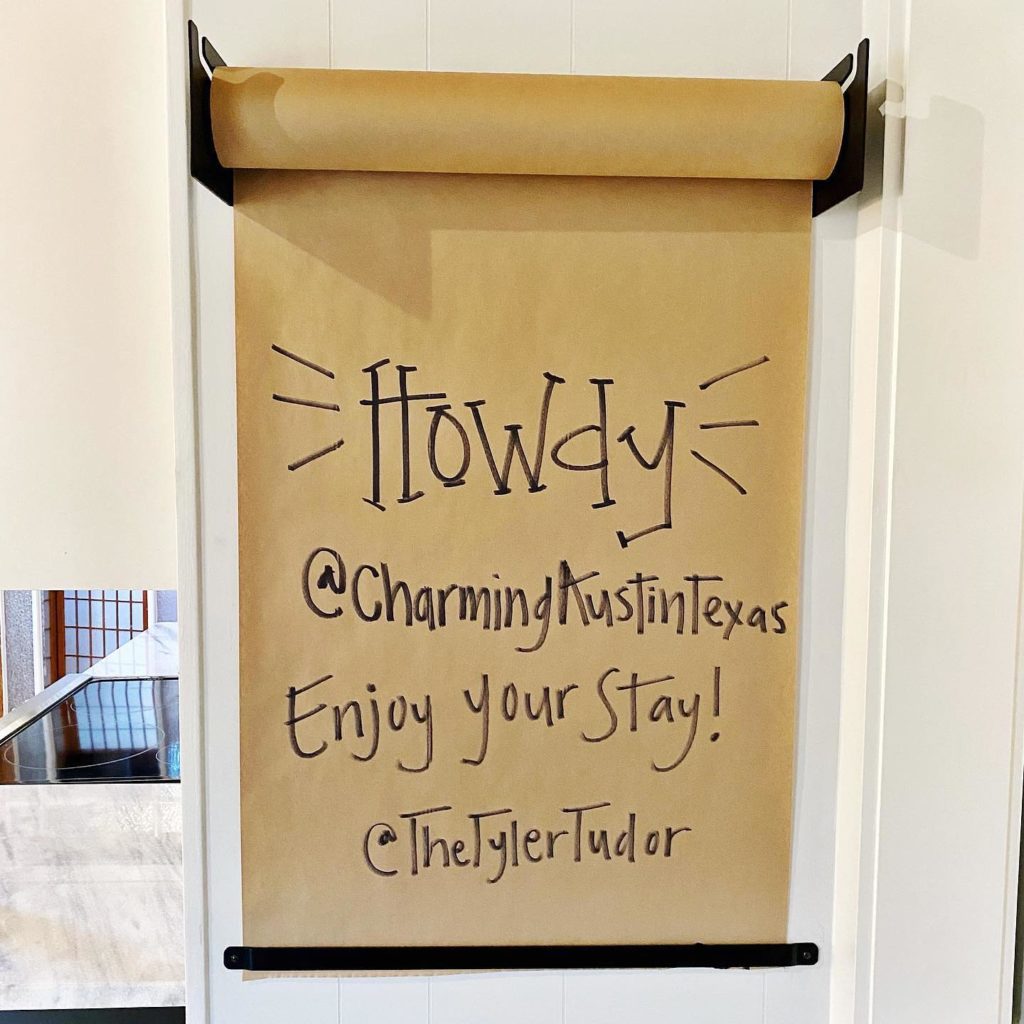 Howdy
@CharmingAustinTexas
Enjoy your Stay!
@TheTylerTudor